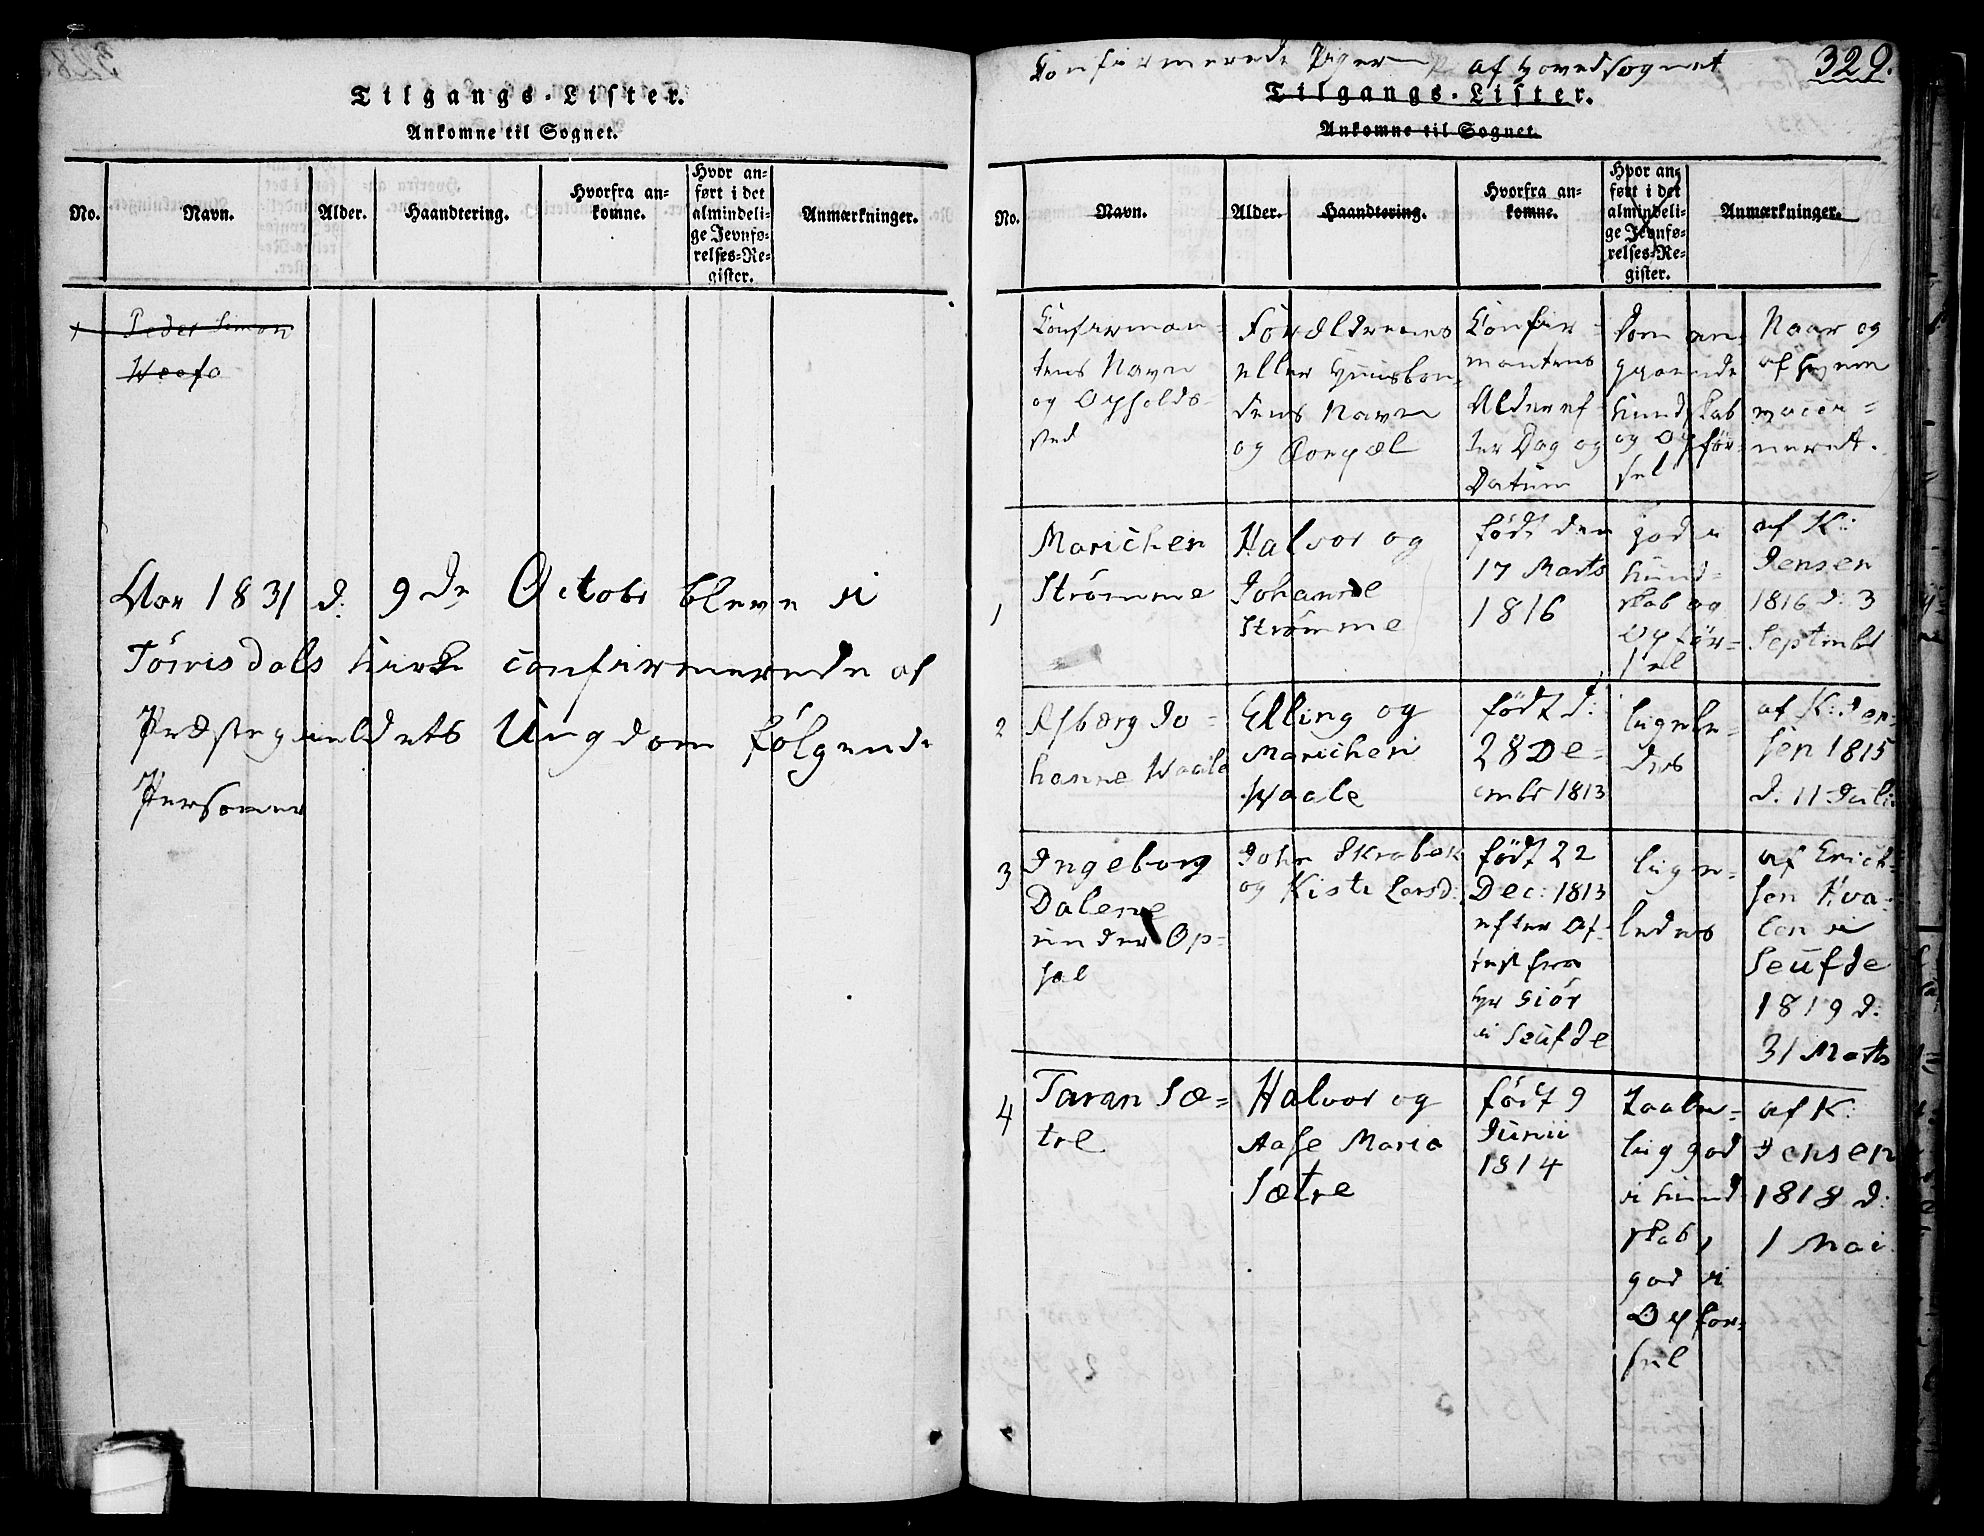 Tilgangs-Lister.
Ankomne til Sognet.
No.
Navn.
Alder.
Haandtering.
Hvorfra an-
komne.
Hvor an-
ført i det
almindeli-
ge Jevnfø-
relses-Re-
gister.
Anmærkninger.
1 Peder Simon
Aar 1831 d: 9de Octobr bleve i
Törrisdals Kirke confirmerede af
Præstegieldets Ungdom følgende
Personer
Confirmerede Piger af Hovedsognet
329.
Tilgangs-Lister.
Ankomne til Sognet.
No.
Navn.
Alder.
Haandtering.
Hvorfra an-
komne.
Hvor an-
ført i det
almindeli-
ge Jevnfø-
relses-Re-
gister.
Anmærkninger.
Confirman-
tens Navn
og Opholds-
sted
Forældrenes
eller Huusbon-
dens Navn
og Bopæl
Confir-
mantens
Alder ef-
ter Dag og
Datum
Dom an-
gaaende
Kundskab
og Opfør-
sel
Naar og
af hvem
vacci-
neret.
1
Marichen
Strömme
Halvor og
Johanne
Strömme
født den
17 Marts
1816
gode
Kund-
skab og
Opför-
sel
af K:
Jensen
1816 d: 3
Septembr
2
Asbærg Jo-
hanne Waale
Elling og
Marichen
Waale
født d:
28 De-
cembr 1813
ligele-
des
af K: Jen-
sen 1815
d. 11 Juli
3
Ingeborg
Dalene
under Op-
sal
John Skrabek
og Kisti Larsd:
født 22
Dec: 1813
efter At-
test fra
Hr Siör
i Seufde
lige-
ledes
af Erich-
sen Kva-
len i
Seufde
1819 d:
31 Marts
4
Taran Sæ-
tre
Halvor og
Aase Maria
Sætre
født 9
Junii
1814
taale-
lig god
i Kund
skab,
god i
Opfør-
sel
af K:
Jensen
1818 d:
1 Mai